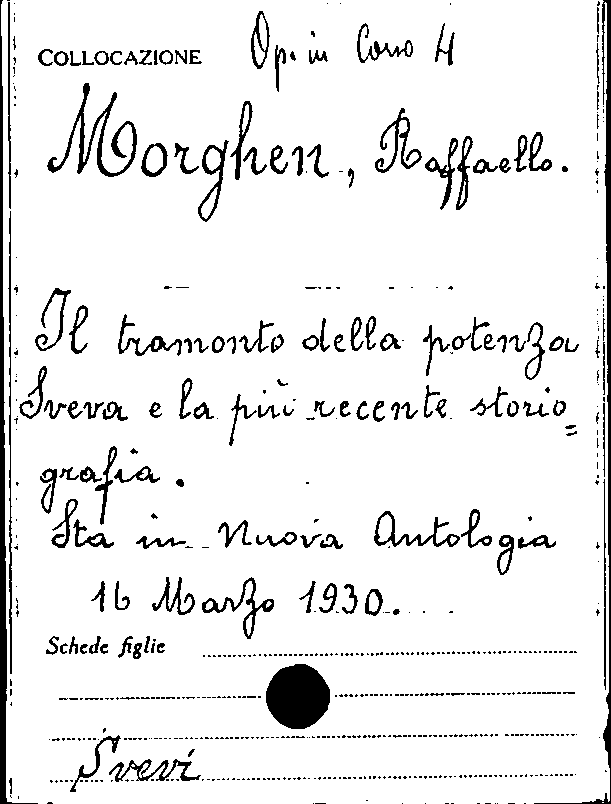 COLLOCAZIONE Op. in Corso 4
Morghen, Raffaello.
Il tramonto della potenza
Sveva e la più recente storio=
grafia.
Sta in Nuova Antologia
16 Marzo 1930.
Schede figlie
Svevi